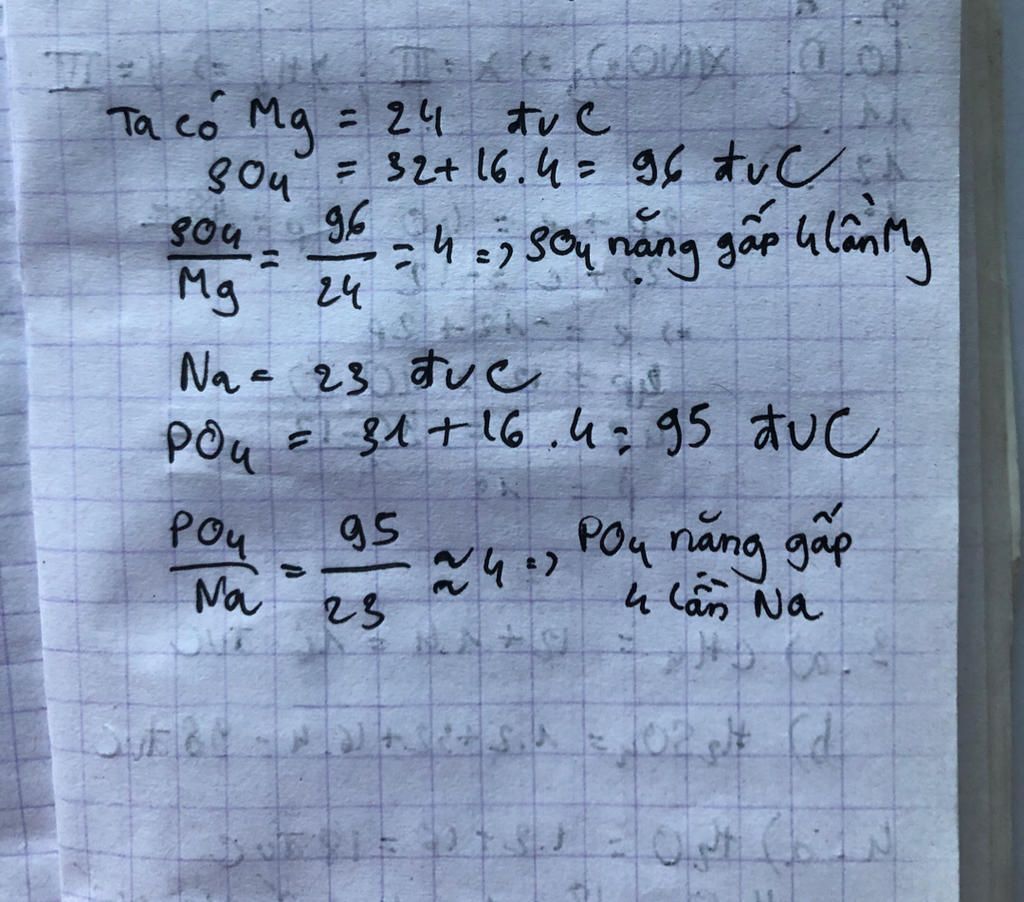 Ta có Mg = 24 đvC
SO4 = 32 + 16.4 = 96 đvC
SO4/Mg = 96/24 = 4 => SO4 nặng gấp 4 lần Mg
Na = 23 đvC
PO4 = 31 + 16.4 = 95 đvC
PO4/Na = 95/23 ≈ 4 => PO4 năng gấp
4 lần Na